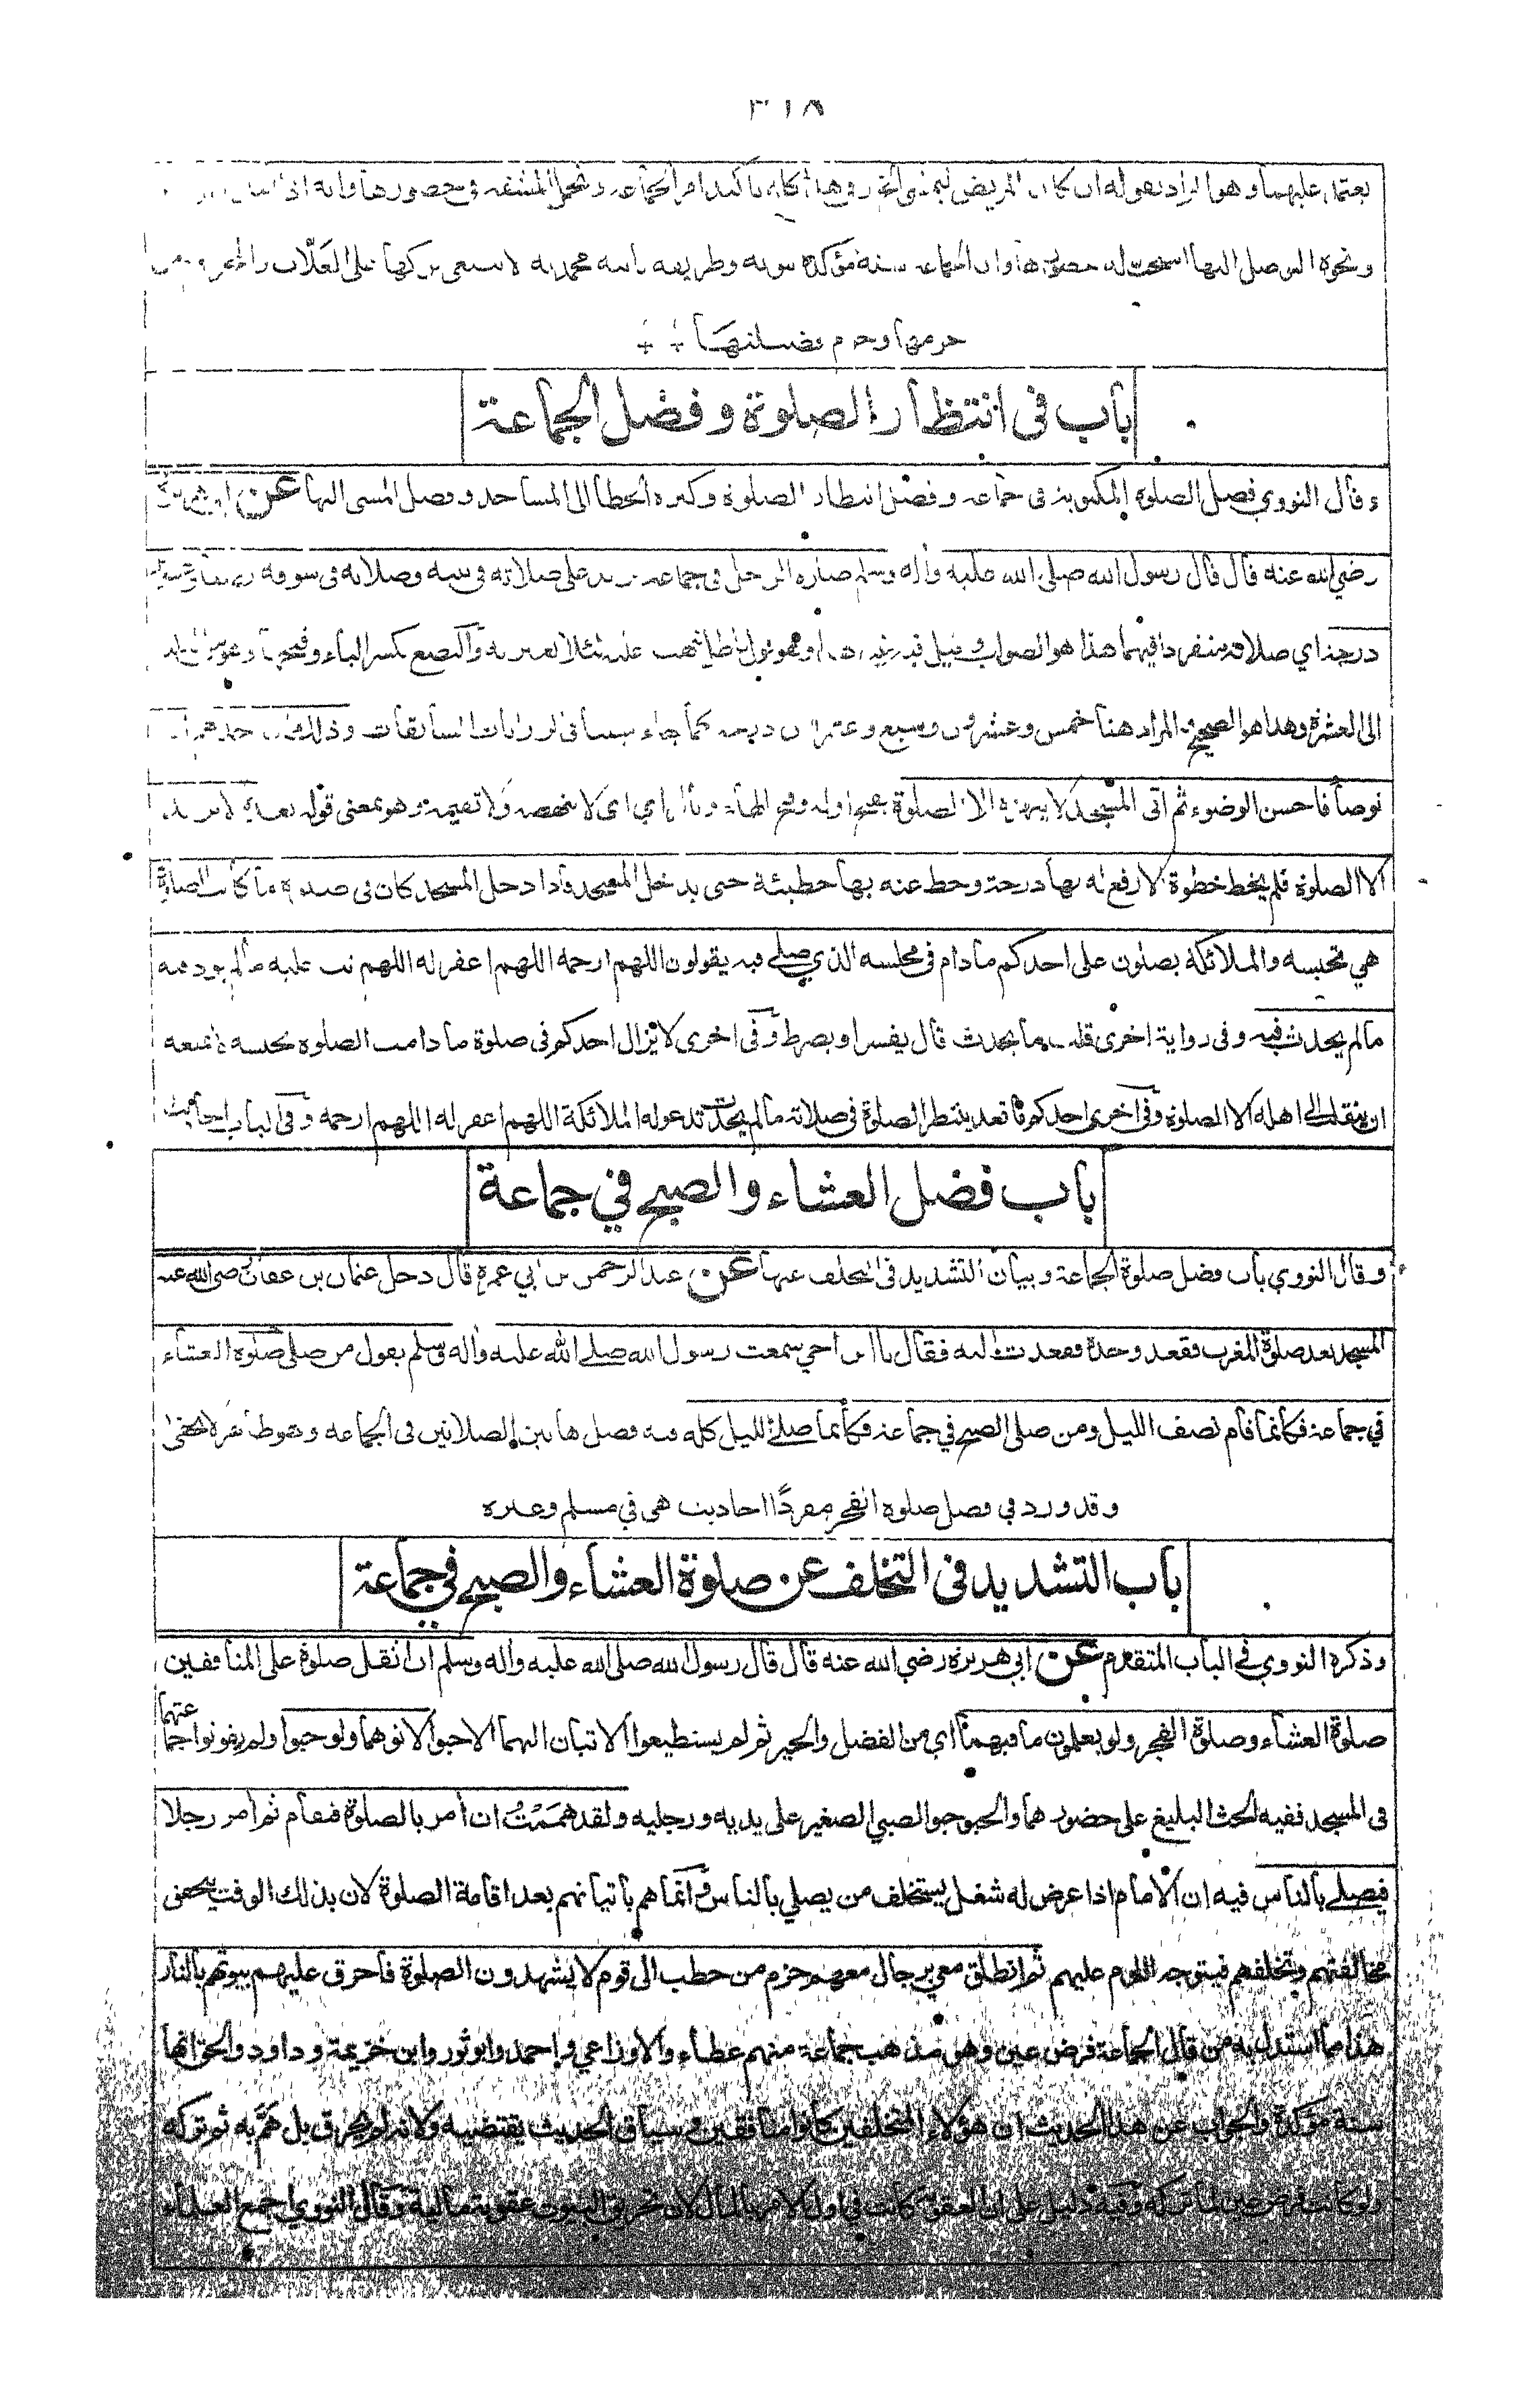 ٣١٨
يعتمد عليهما وهو المراد بقوله ان كان المريض ليمشي وفي هذا كله تأكيد امر الجماعة وتحمل المشقة في حضورها وانه اذا
ونحوه التوصل اليها استحب له حضورها وان الجماعة سنة مؤكدة وطريقة محمدية لا ينبغي تركها
حرمها وحرم فضيلتها
باب في انتظار الصلوة وفضل الجماعة
وقال النووي فضل الصلوة المكتوبة في جماعة وفضل انتظار الصلوة وكثرة الخطا الى المساجد وفضل المشي اليها عن ابي هريرة
رضي الله عنه قال قال رسول الله صلى الله عليه وأله وسلم صلوة الرجل في جماعة تزيد على صلاته في بيته وصلاته في سوقه بضعا وعشرين
درجة اي صلاته منفردا فيهما هذا هو الصواب وقيل فيه غير هذا وهو قول باطل نبهت عليه لئلا يغتر به والبضع بكسر الباء وفتحها وهو من الثلاثة
الى العشرة وهذا هو الصحيح والمراد هنا خمس وعشرون وسبع وعشرون درجة كما جاء مبينا في الروايات السابقات وذلك ان احدهم اذا
توضأ فاحسن الوضوء ثم اتى المسجد لا ينهزه الا الصلوة بفتح اوله وفتح الهاء وبالزاي اي لا تنهضه ولا تقيمه وهو بمعنى قوله بعده لا يريد
الا الصلوة فلم يخط خطوة الا رفع له بها درجة وحط عنه بها خطيئة حتى يدخل المسجد فاذا دخل المسجد كان في صلوة ما كانت الصلوة
هي تحبسه والملائكة يصلون على احدكم مادام في مجلسه الذي صلى فيه يقولون اللهم ارحمه اللهم اغفر له اللهم تب عليه مالم يؤذ فيه
مالم يحدث فيه وفي رواية اخرى قلت ما يحدث قال يفسو او يضرط وفي اخرى لا يزال احدكم في صلوة ما دامت الصلوة تحبسه لا يمنعه
ان ينقلب الى اهله الا الصلوة وفي اخرى احدكم ما قعد ينتظر الصلوة في صلاته مالم يحدث تدعو له الملائكة اللهم اغفر له اللهم ارحمه وفي الباب احاديث
باب فضل العشاء والصبح في جماعة
وقال النووي باب فضل صلوة الجماعة وبيان التشديد في التخلف عنها عن عبد الرحمن بن ابي عمرة قال دخل عثمان بن عفان رضي الله عنه
المسجد بعد صلوة المغرب فقعد وحده فقعدت اليه فقال يا ابن اخي سمعت رسول الله صلى الله عليه واله وسلم يقول من صلى صلوة العشاء
في جماعة فكانما قام نصف الليل ومن صلى الصبح في جماعة فكأنما صلى الليل كله فيه فضل هاتين الصلاتين في الجماعة وهو ظاهر لا يخفى
وقد ورد في فضل صلوة الفجر مفردًا احاديث هي في مسلم وغيره
باب التشديد في التخلف عن صلوة العشاء والصبح في جماعة
وذكره النووي في الباب المتقدم عن ابي هريرة رضي الله عنه قال قال رسول الله صلى الله عليه واله وسلم ان اثقل صلوة على المنافقين
صلوة العشاء وصلوة الفجر ولو يعلمون ما فيهما اي من الفضل والخير ثم لم يستطيعوا الاتيان اليهما الا حبوا لاتوهما ولو حبوا ولم يفوتوا جماعتهما
في المسجد ففيه الحث البليغ على حضورهما والحبو حبو الصبي الصغير على يديه ورجليه ولقد هَمَمْتُ ان أمر بالصلوة فتقام ثم أمر رجلا
فيصلي بالناس فيه ان الامام اذا عرض له شغل يستخلف من يصلي بالناس وانما هم باتيانهم بعد اقامة الصلوة لان بذلك الوقت يتحقق
مخالفتهم وتخلفهم فيتوجه اللوم عليهم ثم انطلق معي برجال معهم حزم من حطب الى قوم لا يشهدون الصلوة فأحرق عليهم بيوتهم بالنار
هذا مما استدل به من قال الجماعة فرض عين وهو مذهب جماعة منهم عطاء والاوزاعي واحمد وابو ثور وابن خزيمة وداود والحق انها
سنة مؤكدة والجواب عن هذا الحديث ان هؤلاء المتخلفين كانوا منافقين وسياق الحديث يقتضيه ولانه لم يحرق بل همَّ به ثم تركه
ولو كانت فرض عين لما تركه وفيه دليل على ان العقوبة كانت في اول الامر بالمال لان تحريق البيوت عقوبة مالية وقال النووي اجمع العلماء